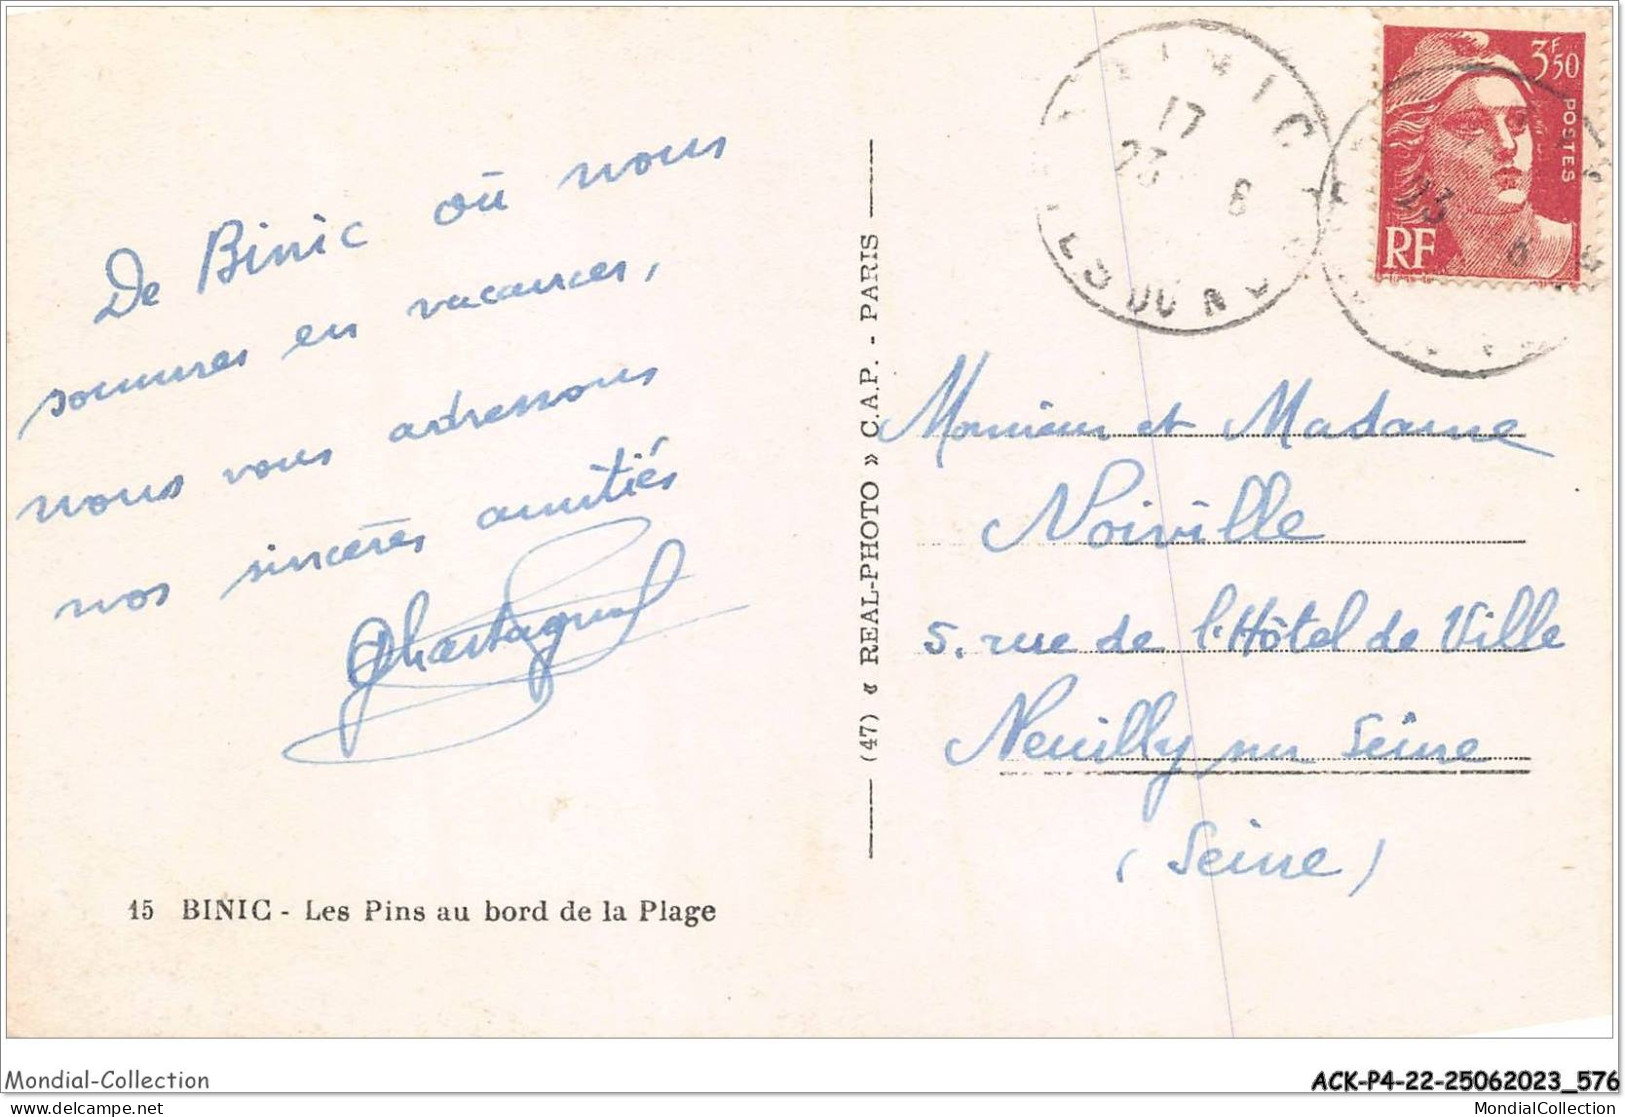 De Binic où nous
sommes en vacances,
nous vous adressons
nos sincères amitiés
15 BINIC - Les Pins au bord de la Plage
(47) « REAL-PHOTO » C.A.P. - PARIS
BINIC
17
23 8
CÔTES DU NORD
3F50
POSTES
RF
23
Monsieur et Madame
Noiville
5, rue de l'Hôtel de Ville
Neuilly sur Seine
(Seine)
Mondial-Collection
ACK-P4-22-25062023_576
delcampe.net
MondialCollection